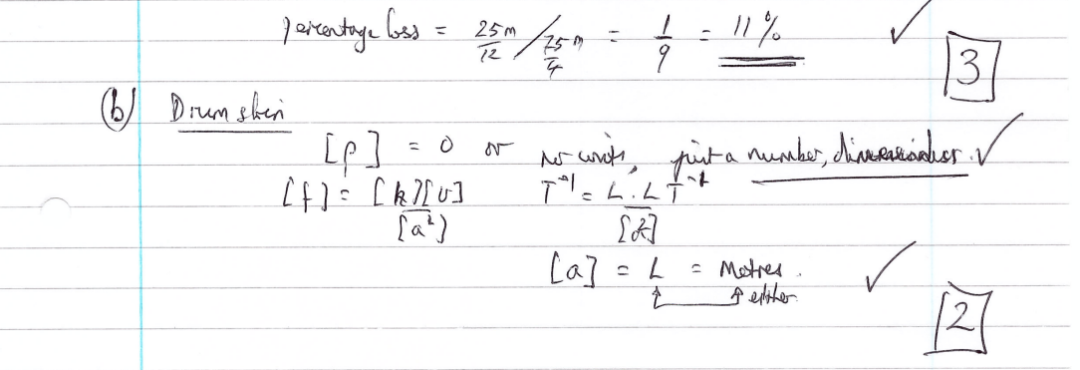 percentage loss = 25m/12 / 75m/4 = 1/9 = 11% ✓
3
(b) Drum skin
[p] = 0 or no units, just a number, dimensionless. ✓
[f] = [k][v]/[a²] T⁻¹ = L.LT⁻¹/[a²]
[a] = L = Metres. ✓
either
2